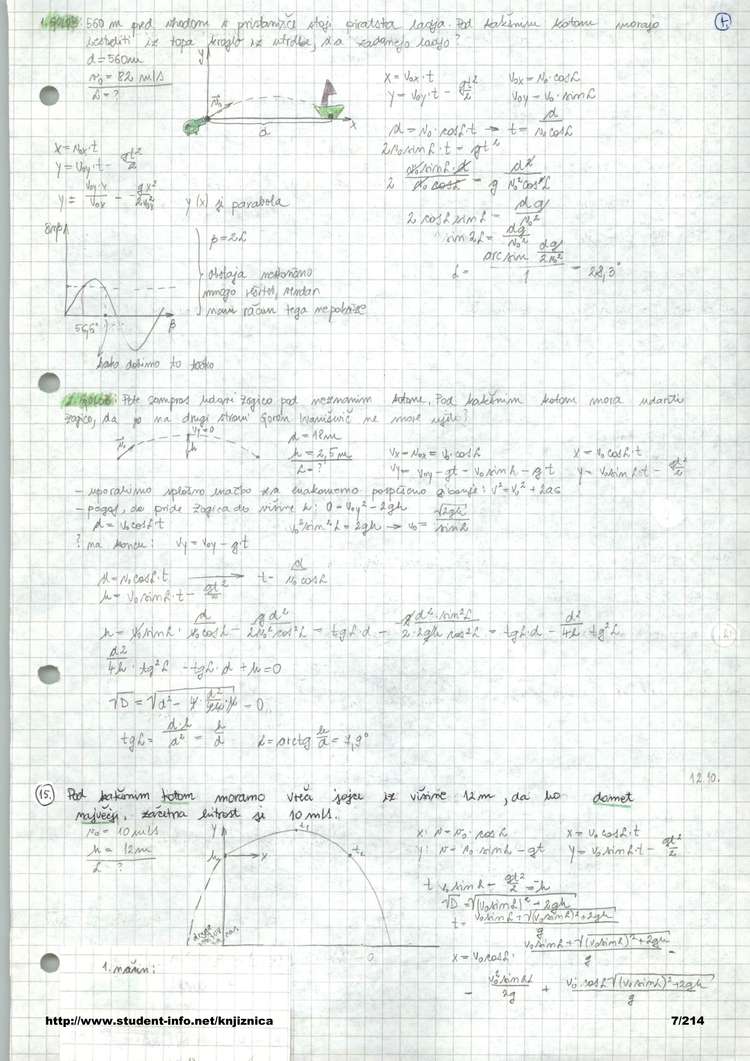 560 m pred vhodom v pristanišče stoji piratska ladja. Pod kakšnim kotom morajo
iz topa kroglo iz utrdbe, da zadanejo ladjo?
d = 560m
v₀ = 82 m/s
L = ?
y
v₀
d
x
x = v₀x · t
y = v₀y · t - gt²/2
v₀x = v₀ · cosL
v₀y = v₀ · sinL
d = v₀ · cosL · t → t = d / v₀ cosL
2v₀ sinL · t = gt²
2 v₀ sinL · d / v₀ cosL = g d² / v₀² cos²L
2 cosL sinL = dg / v₀²
sin 2L = dg / v₀²
x = v₀x · t
y = v₀y · t - gt²/2
y = v₀y · x / v₀x - g x² / 2v₀x²
y(x) je parabola
β = 2L
obstaja neskončno
mnogo rešitev, vendar
nam račun tega ne pokaže
56,5°
β
kako dobimo to točko
Pete Sampras udari žogico pod neznanim kotom. Pod kakšnim kotom mora udariti
žogico, da jo na drugi strani Goran Ivanišević ne more ujeti?
d = 18m
h = 2,5 m
L = ?
vx = v₀x = v₀ · cosL
vy = v₀y - gt = v₀ sinL - gt
x = v₀ cosL · t
y = v₀ sinL · t - gt²/2
- uporabimo splošno enačbo za enakomerno pospešeno gibanje: v² = v₀² + 2as
- pogoj, da pride žogica do višine h: 0 = v₀y² - 2gh
d = v₀ cosL t
v₀² sin²L = 2gh → v₀ = √2gh / sinL
? na koncu: vy = v₀y - g · t
d = v₀ cosL · t → t = d / v₀ cosL
h = v₀ sinL · t - gt²/2
h = v₀ sinL · d / v₀ cosL - g d² / 2v₀² cos²L = tgL · d - g d² · sin²L / 2 · 2gh cos²L = tgL · d - d²/4h · tg²L
d²/4h · tg²L - tgL · d + h = 0
tgL = d·h / d² = h/d
L = arctg h/d = 7,9°
12.10.
15. Pod kakšnim kotom moramo vreči jajce iz višine 12m, da bo domet
največji, začetna hitrost je 10 m/s.
v₀ = 10 m/s
h = 12m
L = ?
y
x
x: v = v₀ · cosL
y: v = v₀ · sinL - gt
x = v₀ cosL · t
y = v₀ sinL · t - gt²/2
t v₀ sinL - gt²/2 = -h
√D = √(v₀ sinL)² + 2gh
t = v₀ sinL + √(v₀ sinL)² + 2gh / g
x = v₀ cosL · v₀ sinL + √(v₀ sinL)² + 2gh / g =
= v₀² sin2L / 2g + v₀ · cosL √(v₀ sinL)² + 2gh / g
1. način:
http://www.student-info.net/knjiznica
7/214